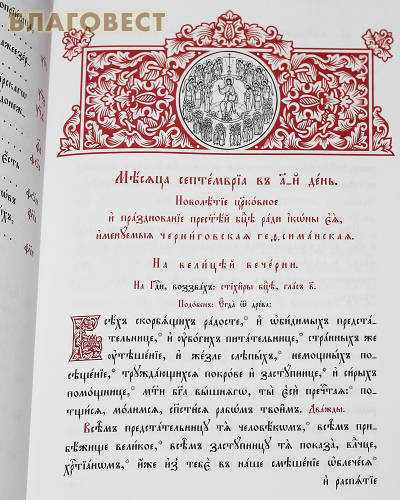 БЛАГОВЕСТ
Мѣ́сѧца септе́мврїа въ а҃-й де́нь.
Новолѣ́тїе цр҃ко́вное
и҆ пра́зднованїе прест҃ѣ́й бц҃ѣ ра́ди і҆кѡ́ны є҆ѧ̀,
и҆менꙋ́емыѧ черни́говскаѧ геѳсима́нскаѧ.
На вели́цѣй вече́рни.
На Гдⷭ҇и, воззва́хъ: стїхи̑ры бц҃ѣ, гла́съ в҃.
Подо́бенъ: Є҆гда̀ ѿ дре́ва:
Всѣ́хъ скорбѧ́щихъ ра́досте, и҆ ѡ҆би́димыхъ предста́-
тельнице, и҆ ᲂу҆бо́гихъ пита́тельнице, стра́нныхъ же
ᲂу҆тѣше́нїе, и҆ же́зле слѣпы́хъ, немощны́хъ по-
сѣще́нїе, трꙋжда́ющихсѧ покро́ве и҆ застꙋ́пнице, и҆ си́рыхъ
помо́щнице, мт҃и бг҃а вы́шнѧгѡ, ты̀ є҆сѝ пречⷭ҇таѧ: по-
тщи́сѧ, мо́лимсѧ, спⷭ҇ти́сѧ рабѡ́мъ твои̑мъ. Два́жды.
Всѣ̑мъ предста́тельницꙋ тѧ̀ человѣ́кѡмъ, всѣ̑мъ при-
бѣ́жище вели́кое, всѣ̑мъ застꙋ́пницꙋ тѧ̀ показа̀, влⷣчце,
хрⷭ҇тїа́нѡмъ, и҆́же и҆з̾ тебє̀ въ на́ше смѣше́нїе ѡ҆блече́сѧ
и҆ распѧ́тїе